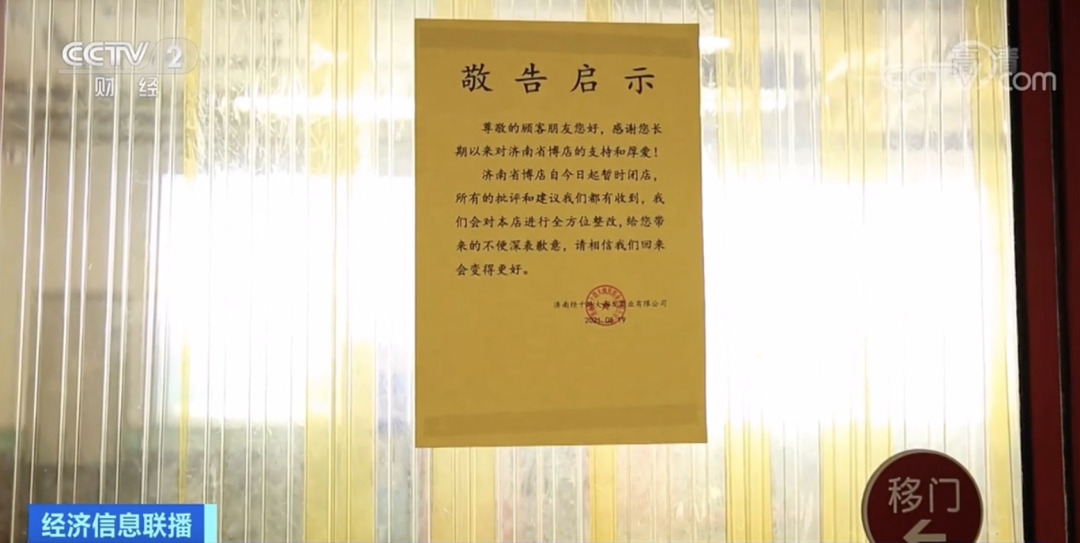 CCTV 2
财经
高清
com
敬告启示
尊敬的顾客朋友您好，感谢您长
期以来对济南省博店的支持和厚爱！
济南省博店自今日起暂时闭店，
所有的批评和建议我们都有收到，我
们会对本店进行全方位整改，给您带
来的不便深表歉意，请相信我们回来
会变得更好。
济南经十路大 业有限公司
2021.08.19
移门
经济信息联播